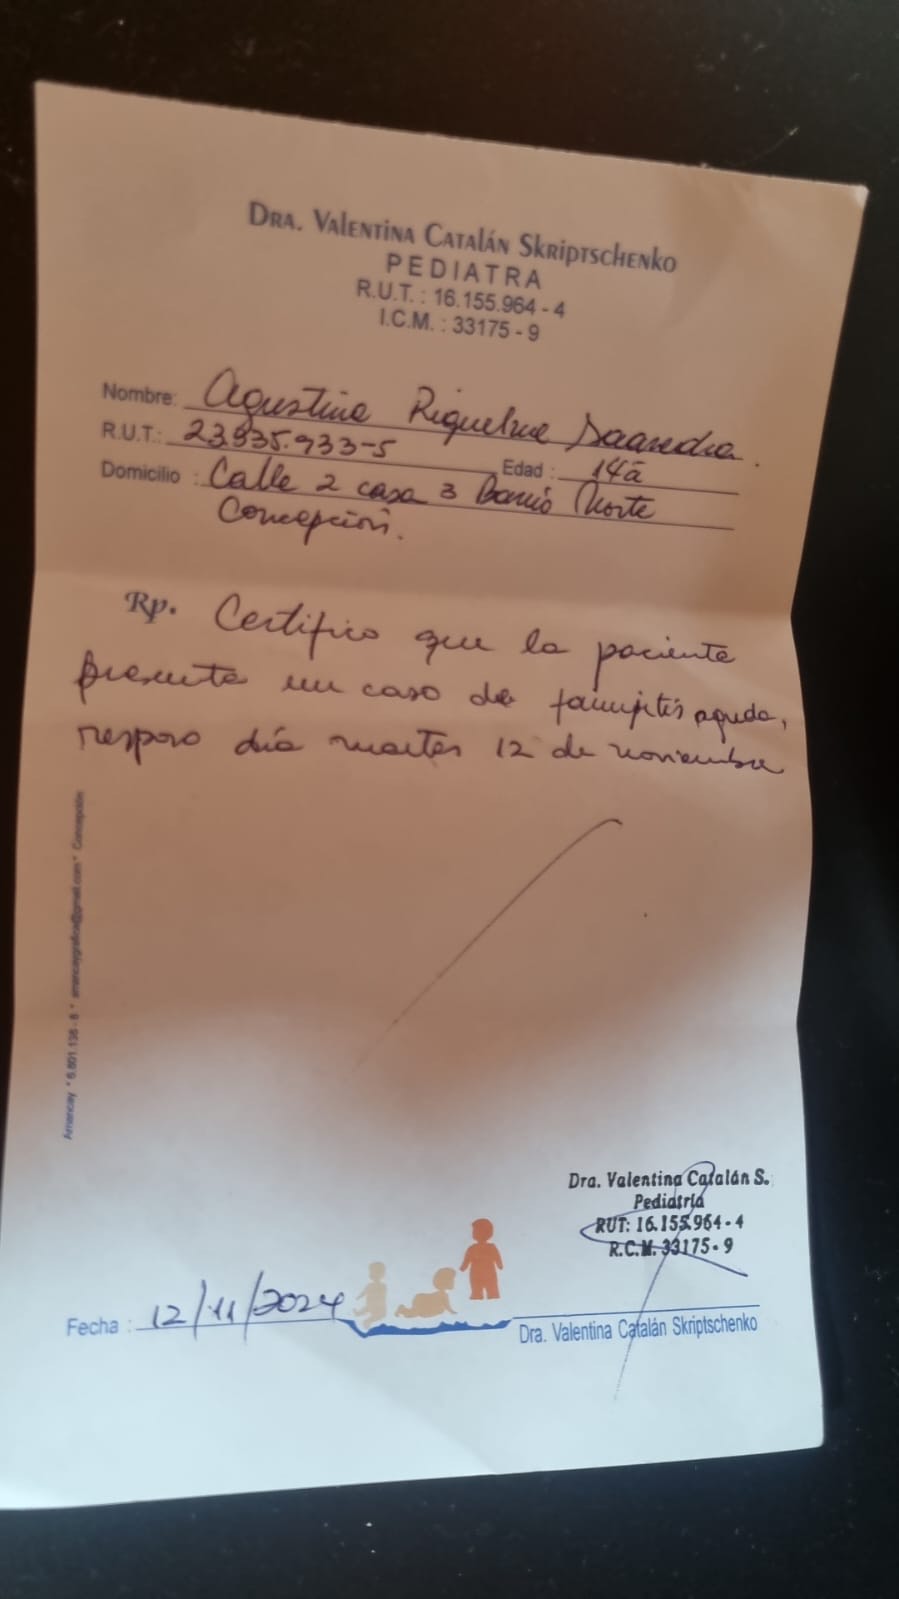 Dra. Valentina Catalán Skriptschenko
PEDIATRA
R.U.T. : 16.155.964 - 4
I.C.M. : 33175 - 9
Nombre: Agustina Riquelme Saavedra.
R.U.T.: 23.935.933-5 Edad : 14ā
Domicilio : Calle 2 casa 3 Barrio Norte
Concepción.
Rp. Certifico que la paciente
presenta un caso de faringitis aguda,
reposo día martes 12 de noviembre
Amancay * 6.801.136 - 8 * amancaygrafica@gmail.com * Concepción
Dra. Valentina Catalán S.
Pediatría
RUT: 16.155.964 - 4
R.C.M. 33175 - 9
Fecha : 12/11/2024
Dra. Valentina Catalán Skriptschenko